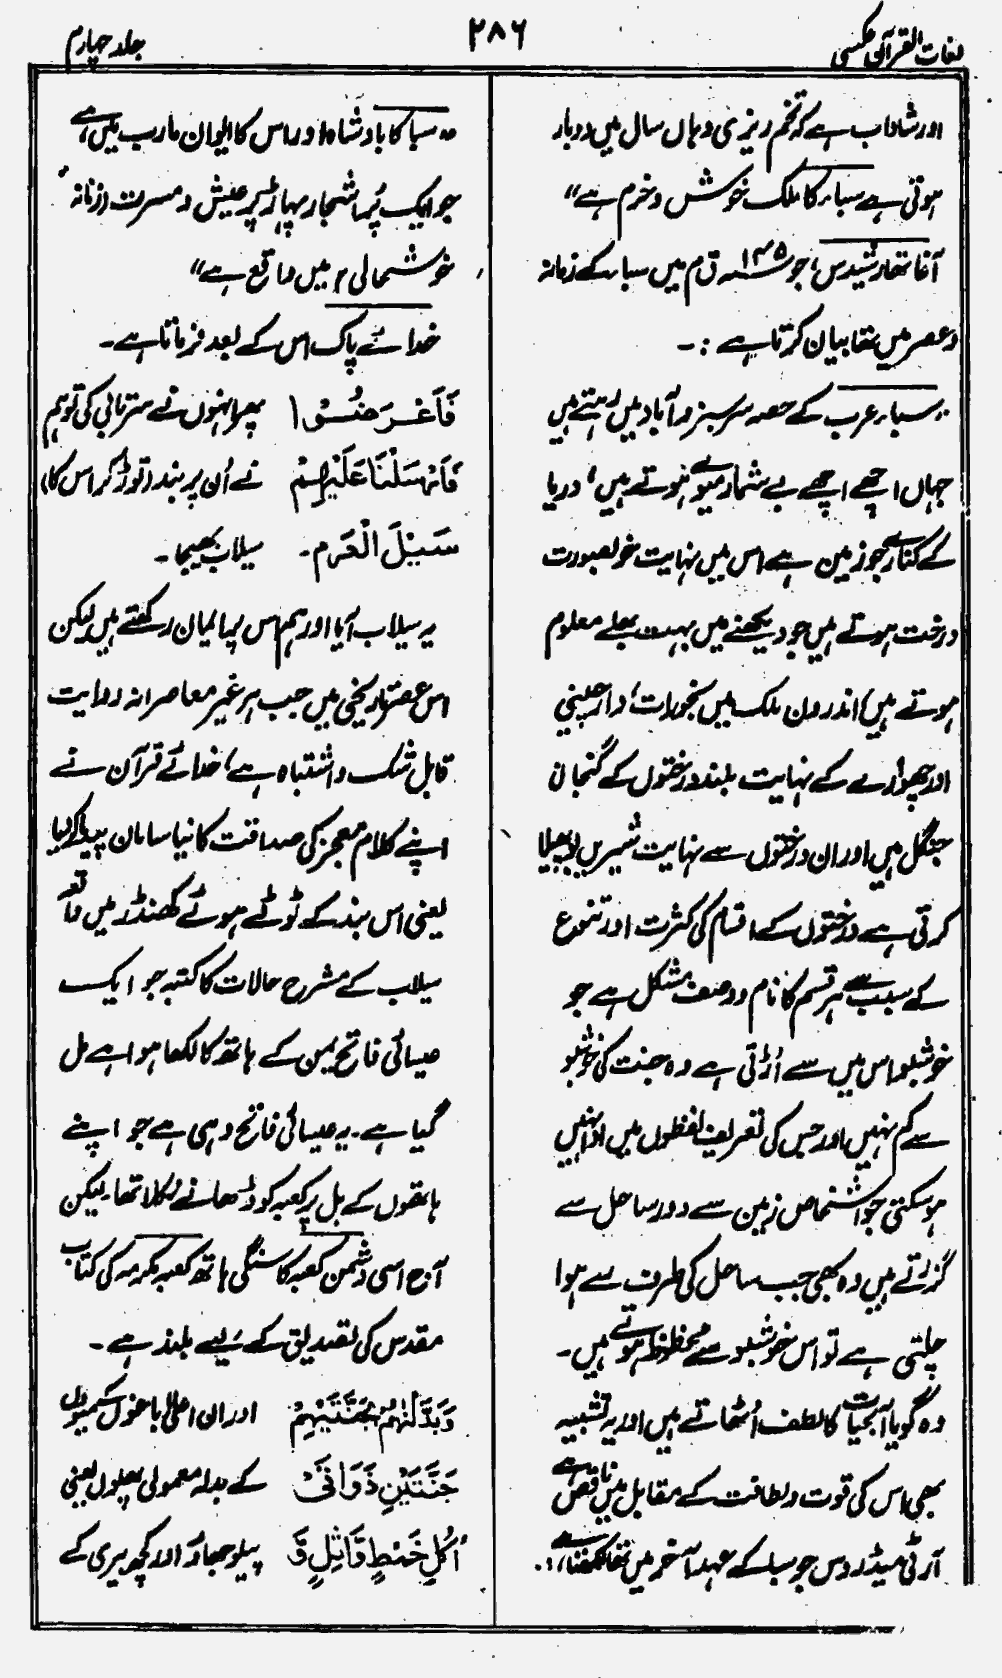 لغات القرآن عکسی
۲۸۶
جلد چہارم
اور شاداب ہے کہ تخم ریزی وہاں سال میں دو بار
ہوتی ہے سباء کا ملک خوش و خرم ہے"
آغا تھارشیدس، جو ۱۴۵ ق م میں سباء کے زمانہ
و عصر میں تھا بیان کرتا ہے :۔
"سباء عرب کے حصہ سرسبز و آباد میں رہتے ہیں
جہاں اچھے اچھے بے شمار میوے ہوتے ہیں، دریا
کے کنارے جو زمین ہے اس میں نہایت خوبصورت
درخت ہوتے ہیں جو دیکھنے میں بہت بھلے معلوم
ہوتے ہیں، اندرون ملک میں بخورات، دارچینی
اور چھوارے کے نہایت بلند درختوں کے گنجان
جنگل ہیں اور ان درختوں سے نہایت شیریں بو پھیلا
کرتی ہے درختوں کے اقسام کی کثرت اور تنوع
کے سبب سے ہر قسم کا نام و وصف مشکل ہے جو
خوشبو اس میں سے اڑتی ہے وہ جنت کی خوشبو
سے کم نہیں اور جس کی تعریف لفظوں میں ادا نہیں
ہو سکتی جو اشخاص زمین سے دور ساحل سے
گزرتے ہیں وہ بھی جب ساحل کی طرف سے ہوا
چلتی ہے تو اس خوشبو سے محظوظ ہوتے ہیں۔
وہ گویا آب حیات کا لطف اُٹھاتے ہیں اور یہ تشبیہ
بھی اس کی قوت و لطافت کے مقابل میں ناقص ہے
آرٹی میڈروس جو سبا کے عہد آخر میں تھا لکھتا ہے:۔
"سبا کا بادشاہ اور اس کا ایوان مارب میں ہے
جو ایک پُر اشجار پہاڑ پر عیش و مسرت (زنانہ
خوشحالی) میں واقع ہے"
خدائے پاک اس کے بعد فرماتا ہے۔
فَاَعْرَضُوْا پھر انہوں نے سرتابی کی تو ہم
فَاَرْسَلْنَا عَلَيْهِمْ نے اُن پر بند (توڑ کر اس کا)
سَيْلَ الْعَرِمِ۔ سیلاب بھیجا۔
یہ سیلاب آیا اور ہم اس پر ایمان رکھتے ہیں لیکن
اس عصر تاریخی میں جب ہر غیر معاصرانہ روایت
قابل شک و اشتباہ ہے، خدائے قرآن نے
اپنے کلام معجز کی صداقت کا نیا سامان پیدا کر لیا
یعنی اس بند کے ٹوٹے ہوئے کھنڈر میں واقعہ
سیلاب کے مشرح حالات کا کتبہ جو ایک
عیسائی فاتح یمن کے ہاتھ کا لکھا ہوا ہے مل
گیا ہے۔ یہ عیسائی فاتح وہی ہے جو اپنے
ہاتھوں کے بل پر کعبہ کو ڈھانے نکلا تھا۔ لیکن
آج اسی دشمن کعبہ کا سنگی ہاتھ کعبہ مکرمہ کی کتاب
مقدس کی تصدیق کے لیے بلند ہے۔
وَبَدَّلْنٰهُمْ بِجَنَّتَيْهِمْ اور ان اعلیٰ باغوں کے میووں
جَنَّتَيْنِ ذَوَاتَىْ کے بدلہ معمولی پھلوں یعنی
اُكُلٍ خَمْطٍ وَّاَثْلٍ وَّ پیلو جھاؤ اور کچھ بیری کے